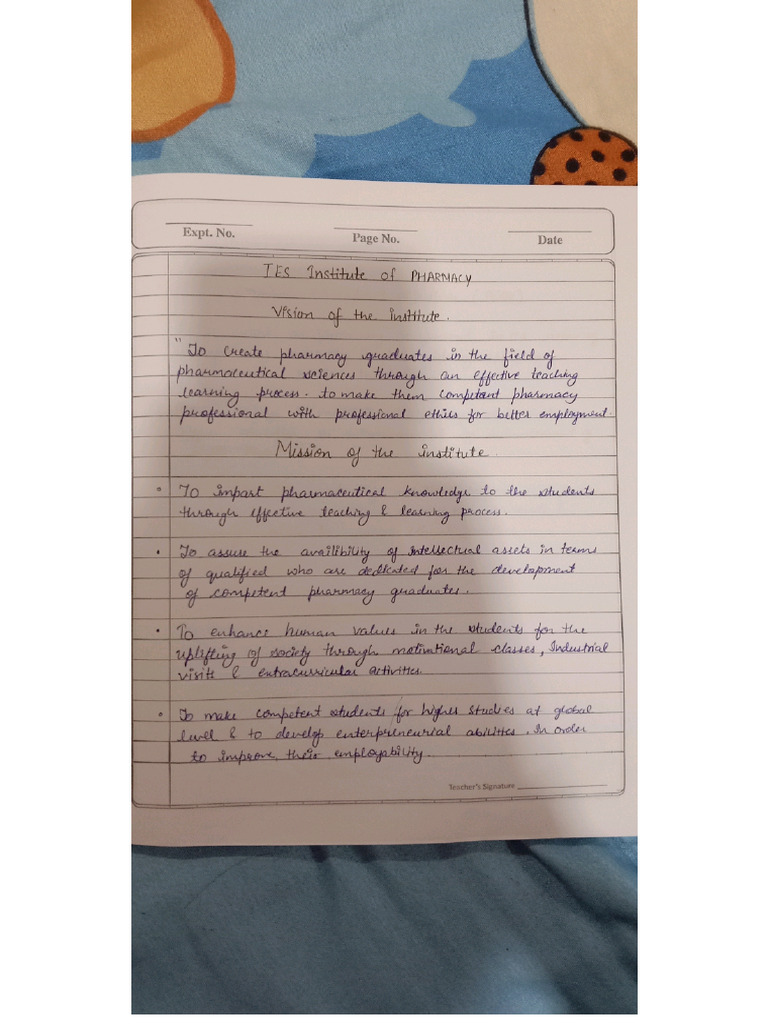 Expt. No.
Page No.
Date
IES Institute of PHARMACY
Vision of the institute.
" To create pharmacy graduates in the field of
pharmaceutical sciences through an effective teaching
learning process. to make them competent pharmacy
professional with professional ethics for better employment.
Mission of the institute.
• To impart pharmaceutical knowledge to the students
through effective teaching & learning process.
• To assure the availibility of intellectual assets in terms
of qualified who are dedicated for the development
of competent pharmacy graduates.
• To enhance human values in the students for the
uplifting of society through motivational classes, Industrial
visits & extracurricular activities.
• To make competent students for higher studies at global
level & to develop enterpreneurial abilities. In order
to improve their employability.
Teacher's Signature